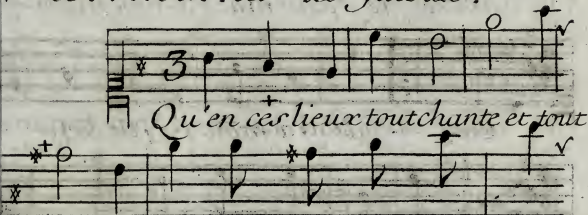 3
Qu'en ces lieux tout chante et tout